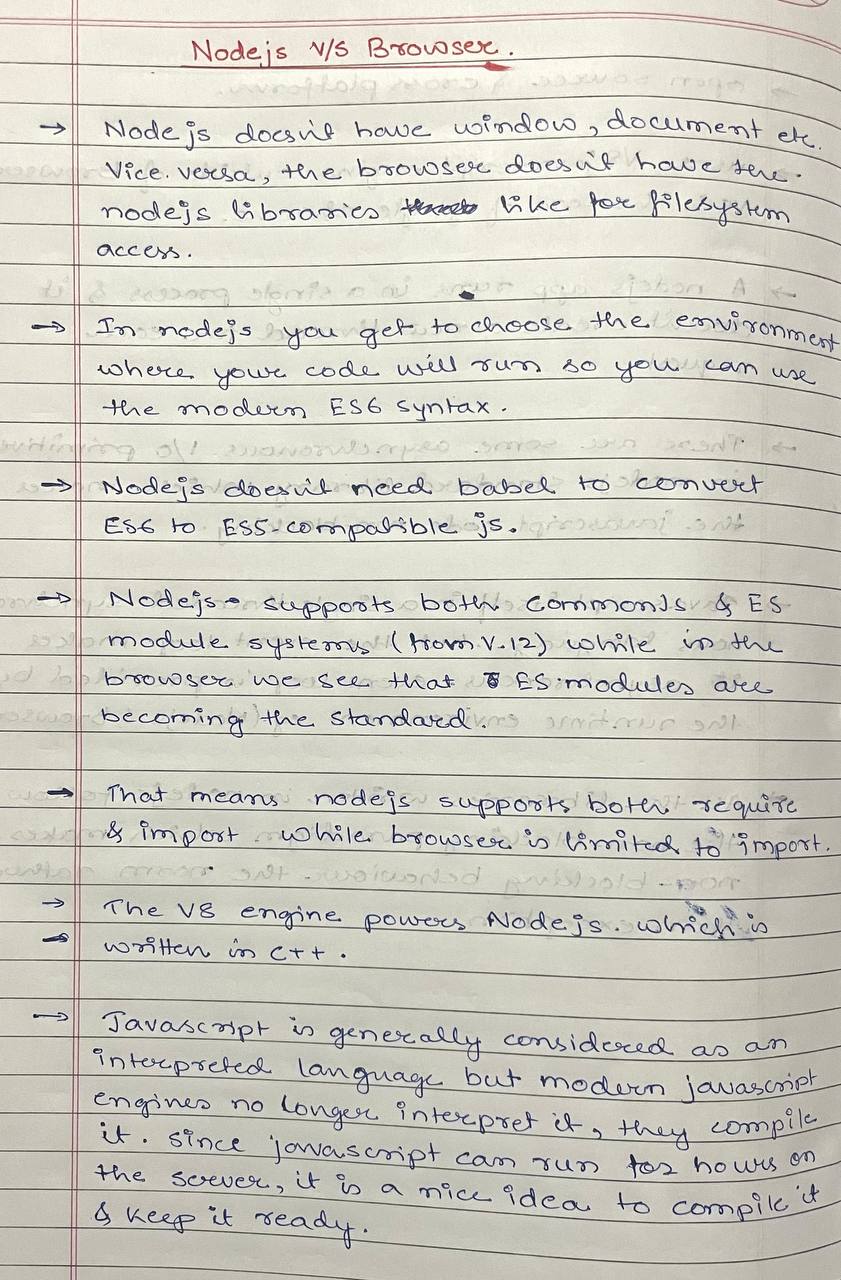 Nodejs v/s Browser.
→ Nodejs doesn't have window, document etc.
Vice versa, the browser doesn't have the
nodejs libraries like for filesystem
access.
→ In nodejs you get to choose the environment
where your code will run so you can use
the modern ES6 syntax.
→ Nodejs doesn't need babel to convert
ES6 to ES5-compatible js.
→ Nodejs supports both commonJs & ES
module systems (from V.12) while in the
browser we see that ES modules are
becoming the standard.
→ That means nodejs supports both require
& import while browser is limited to import.
→ The V8 engine powers Nodejs. which is
→ written in c++.
→ Javascript is generally considered as an
interpreted language but modern javascript
engines no longer interpret it, they compile
it. since javascript can run for hours on
the server, it is a nice idea to compile it
& keep it ready.